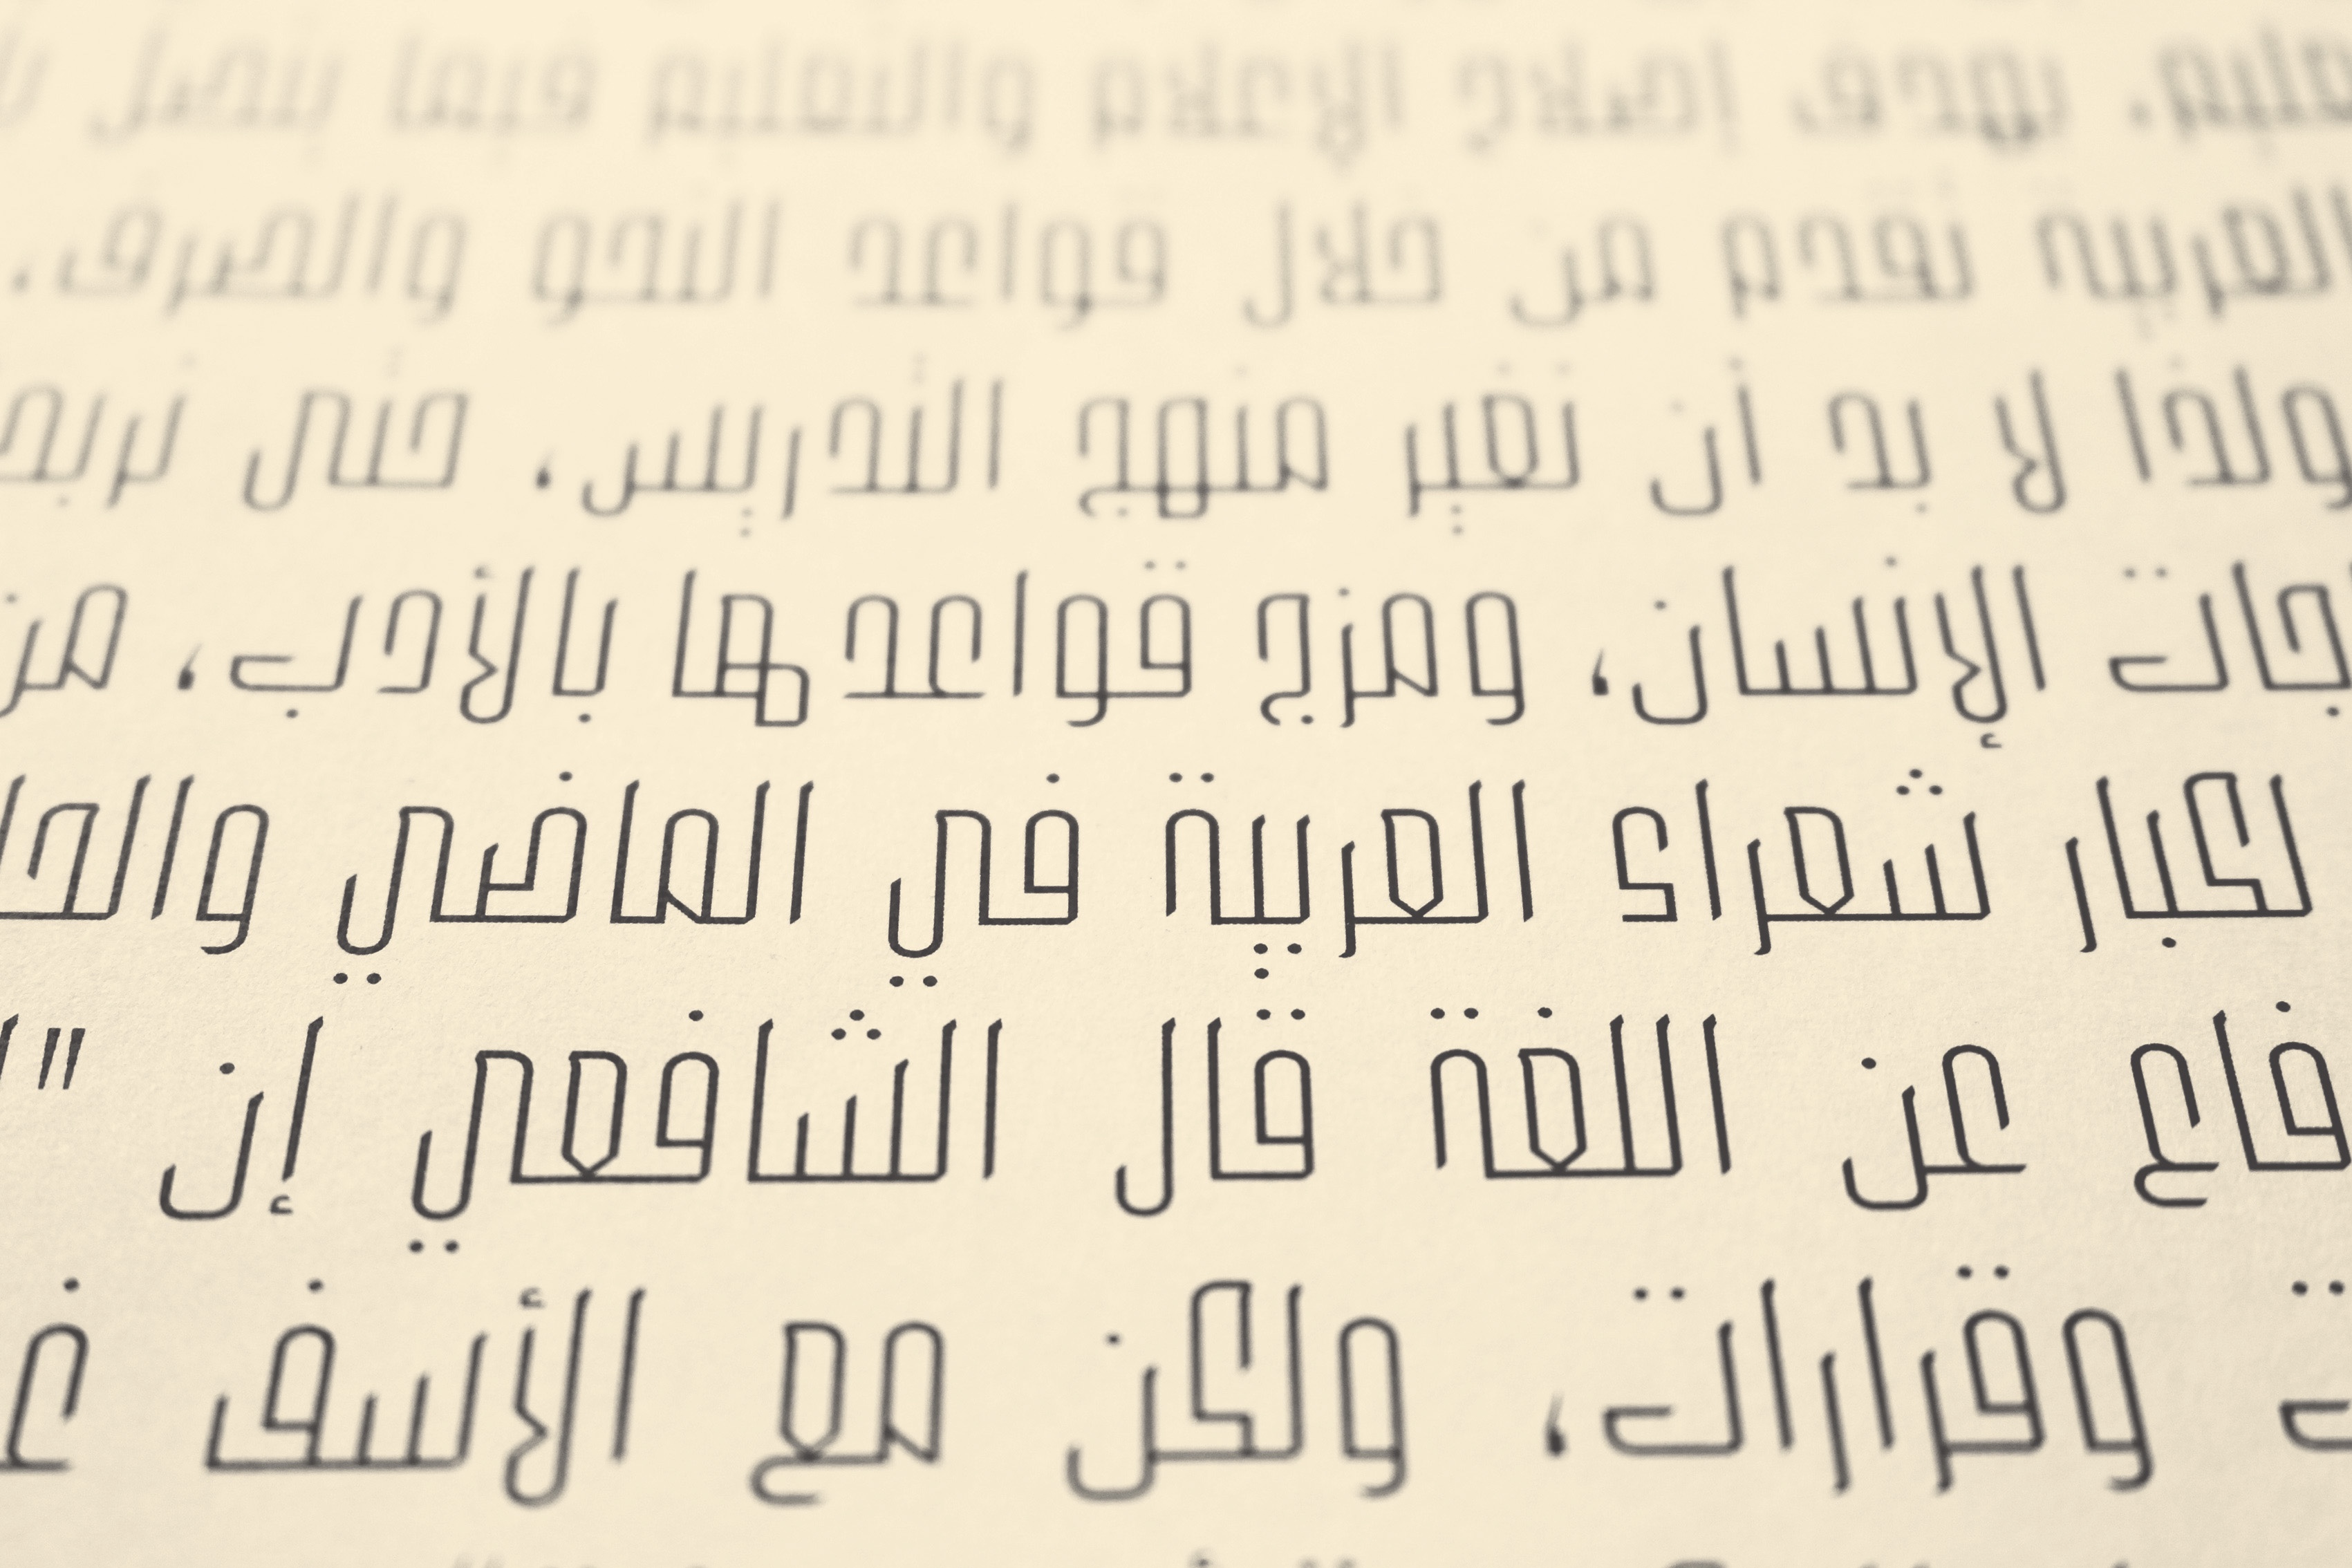 يهدف إصلاح الإعلام والتعليم فيما يتصل
العربية تقدم من خلال قواعد النحو والصرف،
ولذا لا بد أن نغير منهج التدريس، حتى نربط
الإنسان، ومزج قواعدها بالأدب، من
لكبار شعراء العربية في الماضي
عن اللغة قال الشافعي إن "
وقرارات، ولكن مع الأسف